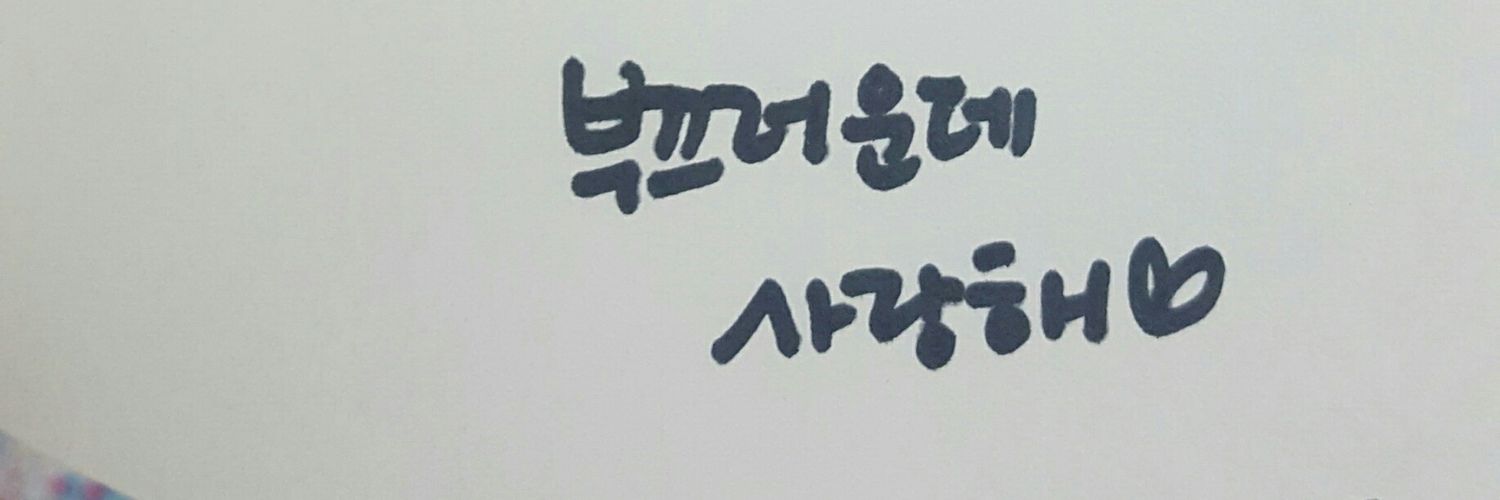 부끄러운데
사랑해♡